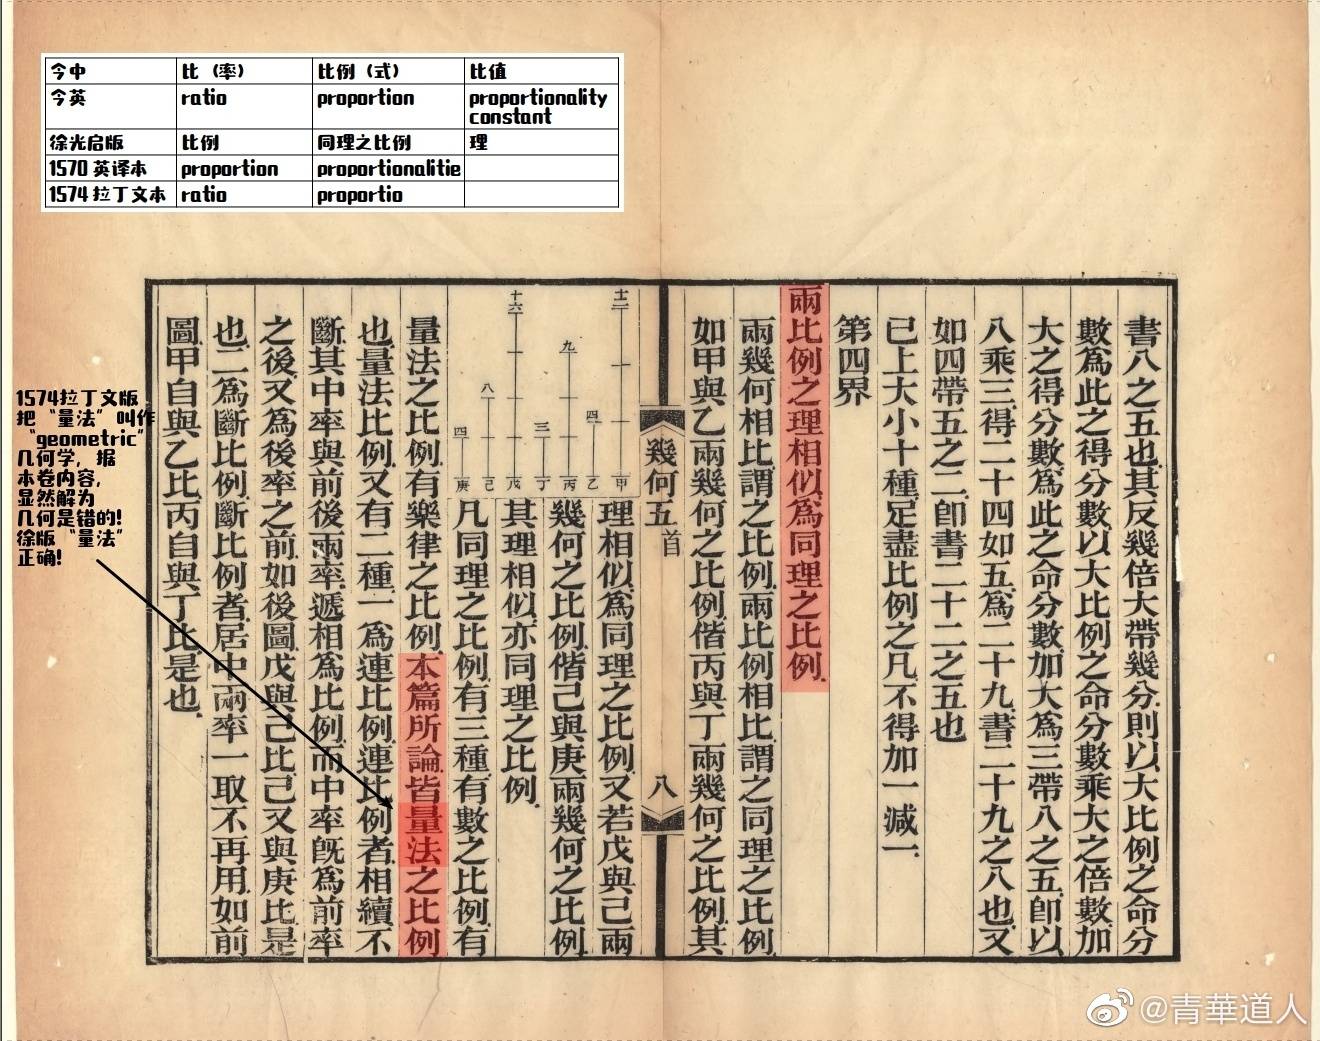 今中 比（率） 比例（式） 比值
今英 ratio proportion proportionality constant
徐光启版 比例 同理之比例 理
1570英译本 proportion proportionalitie
1574拉丁文本 ratio proportio
書八之五也其反幾倍大帶幾分則以大比例之命分
數爲此之得分數以大比例之命分數乘大之倍數加
大之得分數爲此之命分數加大爲三帶八之五卽以
八乘三得二十四如五爲二十九書二十九之八也又
如四帶五之二卽書二十二之五也
已上大小十種足盡比例之凡不得加一減一
第四界
兩比例之理相似爲同理之比例
兩幾何相比謂之比例兩比例相比謂之同理之比例
如甲與乙兩幾何之比例偕丙與丁兩幾何之比例其
幾何五首
八
理相似爲同理之比例又若戊與己兩
幾何之比例偕己與庚兩幾何之比例
其理相似亦同理之比例
凡同理之比例有三種有數之比例有
量法之比例有樂律之比例本篇所論皆量法之比例
也量法比例又有二種一爲連比例連比例者相續不
斷其中率與前後兩率遞相爲比例而中率旣爲前率
之後又爲後率之前如後圖戊與己比己又與庚比是
也二爲斷比例斷比例者居中兩率一取不再用如前
圖甲自與乙比丙自與丁比是也
十二
四
九
三
十六
八
四
甲
乙
丙
丁
戊
己
庚
1574拉丁文版
把“量法”叫作
“geometric”
几何学，据
本卷内容，
显然解为
几何是错的!
徐版“量法”
正确!
@青華道人